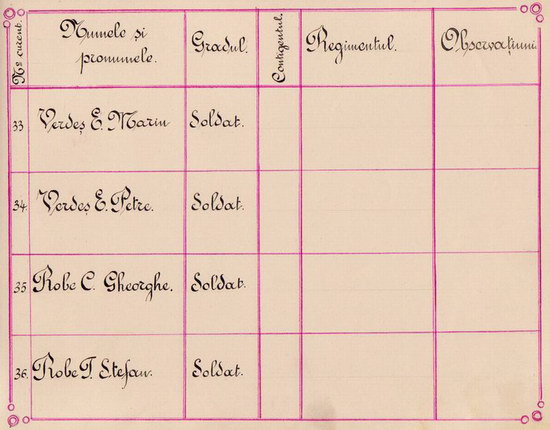 No curent. Numele și pronumele. Gradul. Contigentul. Regimentul. Observațiuni.
33 Verdeș E. Marin Soldat.
34. Verdeș E. Petre. Soldat.
35 Robe C. Gheorghe. Soldat.
36. Robe T. Stefan. Soldat.